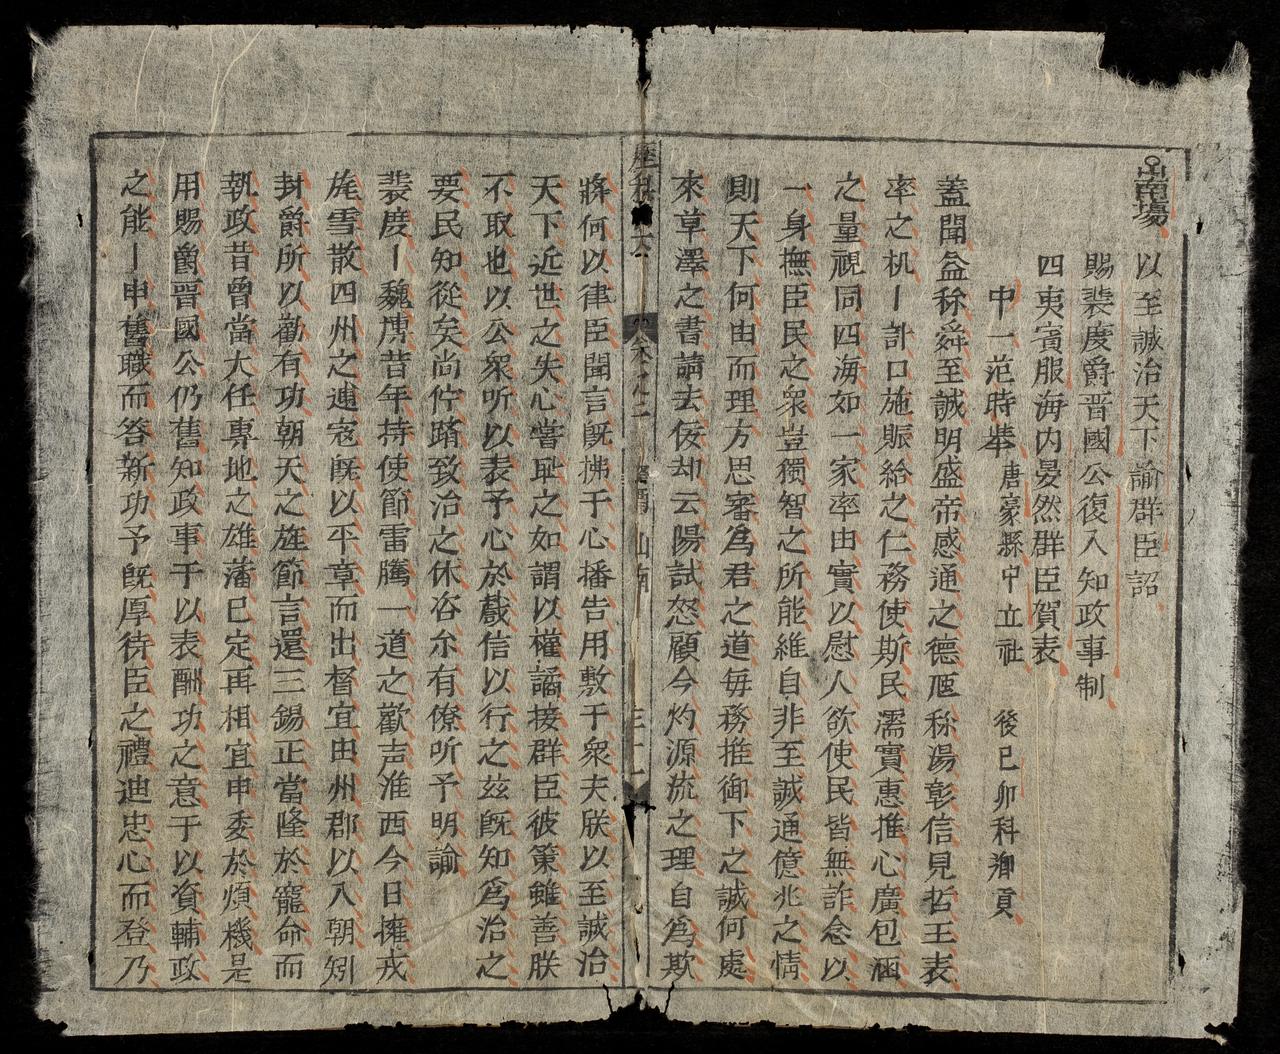 山南場 以至誠治天下諭群臣詔
賜裴度爵晋國公復入知政事制
四夷賓服海内晏然群臣賀表
中一范時㨂 唐豪縣中立社 後己卯科鄉貢
蓋聞益称舜至誠明盛帝感通之德尫称湯彰信見哲王表
率之机一計口施賑給之仁務使斯民濡實惠推心廣包涵
之量視同四海如一家率由實以慰人欲使民皆無詐念以
一身撫臣民之衆豈獨智之所能維自非至誠通億兆之情
則天下何由而理方思審為君之道毎務推御下之誠何處
來草澤之書請去佞却云陽試怒顧今灼源流之理自為欺
座科 六 之二 山南 三十一
將何以律臣聞言旣拂于心播告用敷于衆夫朕以至誠治
天下近世之失心嘗耻之如謂以權譎接群臣彼策雖善朕
不取也以公衆听以表予心於戱信以行之玆旣知為治之
要民知從矣尚佇躋致治之休咨尒有僚听予明諭
裴度一魏慱昔年持使節雷騰一道之歡声淮西今日擁戎
旄雪散四州之逋寇旣以平章而出督宜由州郡以入朝矧
封爵所以勸有功朝天之旌節言還三錫正當隆於寵命而
執政昔曾當大任專地之雄藩已定再相宜申委於煩機是
用賜爵晋國公仍舊知政事于以表酬功之意于以資輔政
之能一申舊職而答新功予旣厚待臣之禮迪忠心而登乃